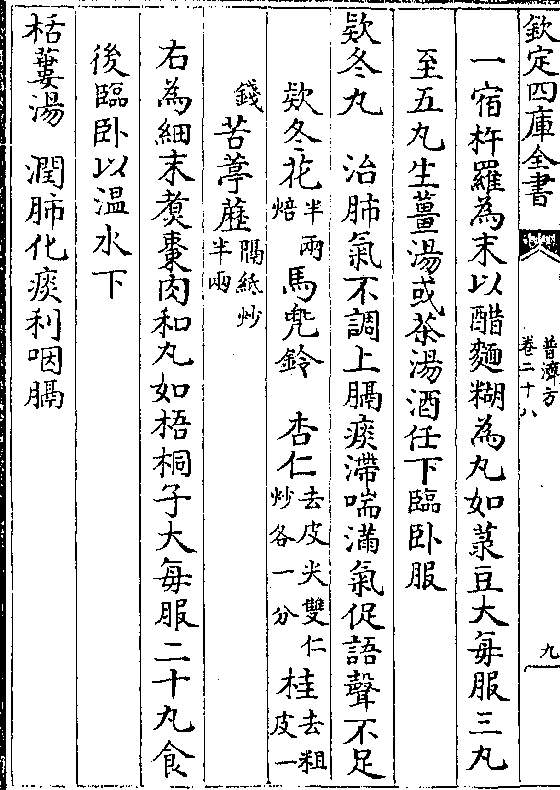 欽定四庫全書
普濟方
卷二十八
九
一宿杵羅為末以醋麵糊為丸如菉豆大每服三丸
至五丸生薑湯或茶湯酒任下臨卧服
欵冬丸　治肺氣不調上膈痰滯喘滿氣促語聲不足
欵冬花半兩焙　馬兠鈴　杏仁去皮尖雙仁炒各一分　桂去粗皮一
錢　苦葶藶隔紙炒半兩
右為細末煑棗肉和丸如梧桐子大每服二十丸食
後臨卧以温水下
栝蔞湯　潤肺化痰利咽膈